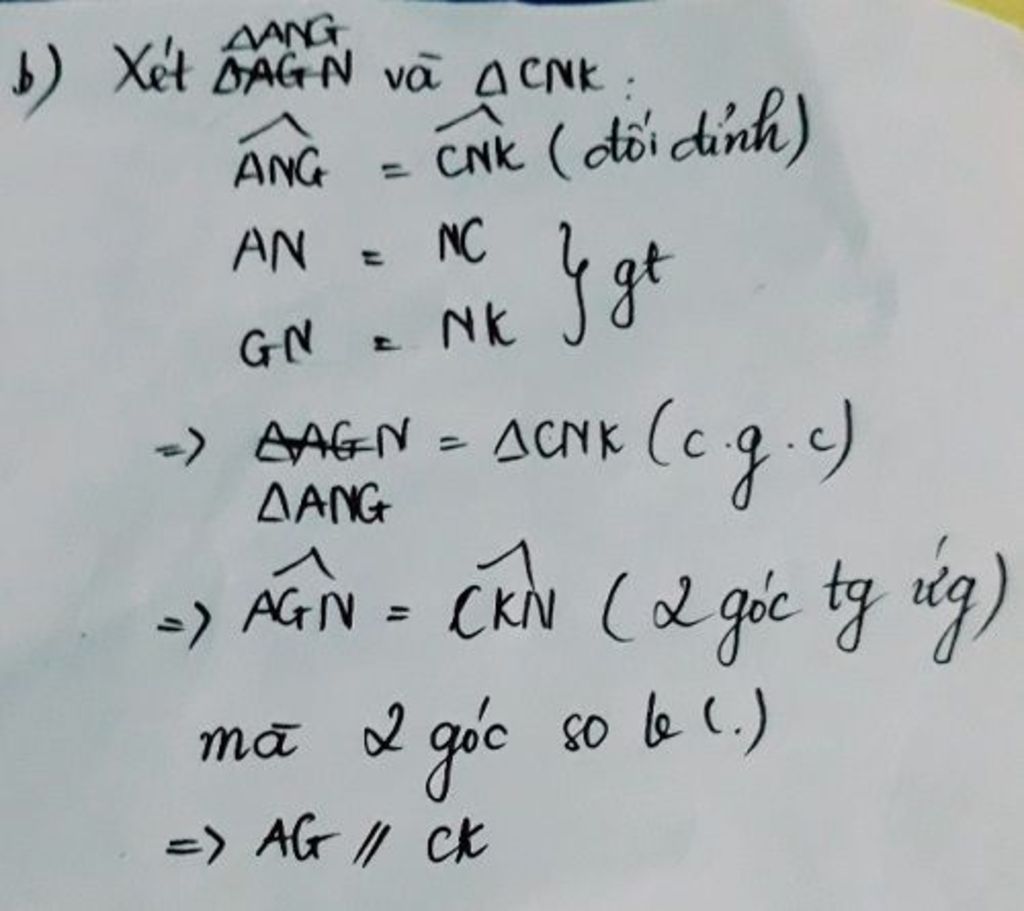 ΔANG
b) Xét ΔAGN và ΔCNK:
ANG = CNK (đối đỉnh)
AN = NC } gt
GN = NK
=> ΔAGN = ΔCNK (c.g.c)
ΔANG
=> AGN = CKN (2 góc tg ứg)
mà 2 góc so le (.)
=> AG // CK